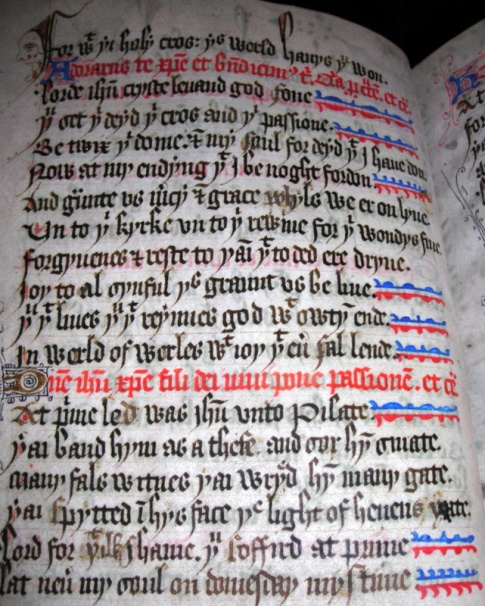 For wt yi holy cros: ys werld hauys yu won.
Adoramus te xpe et bndicimꝰ t. Qia p cce. et c̄
lorde ihu cryste leuand god sone
yu sett yi deyd yi cros and yi passione
Be twix yi dome & my saul for deyd yt I haue don
Now at my endyng yt I be noght fordon
And graunte vs mcy & grace whyls we er on lyue
Vn to yi kyrke vn to yi rewme for yi wondys fiue
forgyuenes & reste to yai yt to ded ere dryue.
Ioy to al synful ys graunt vs be liue.
yu yt liues yu yt reynues god wt owtyn ende.
In werld of werles wt ioy yt eu sal lende.
Dne ihu xpe fili dei uiui pone passione. et c̄
At pme led was ihu vnto Pilate
yai band hym as a thefe. and sor hym smate.
many fals witnes yai wryd hym many gate.
yai spytted i hys face ye light of heuens yate.
Lord for yilk shame. yu soffird at prime
lat neu my soul on domesday mystime